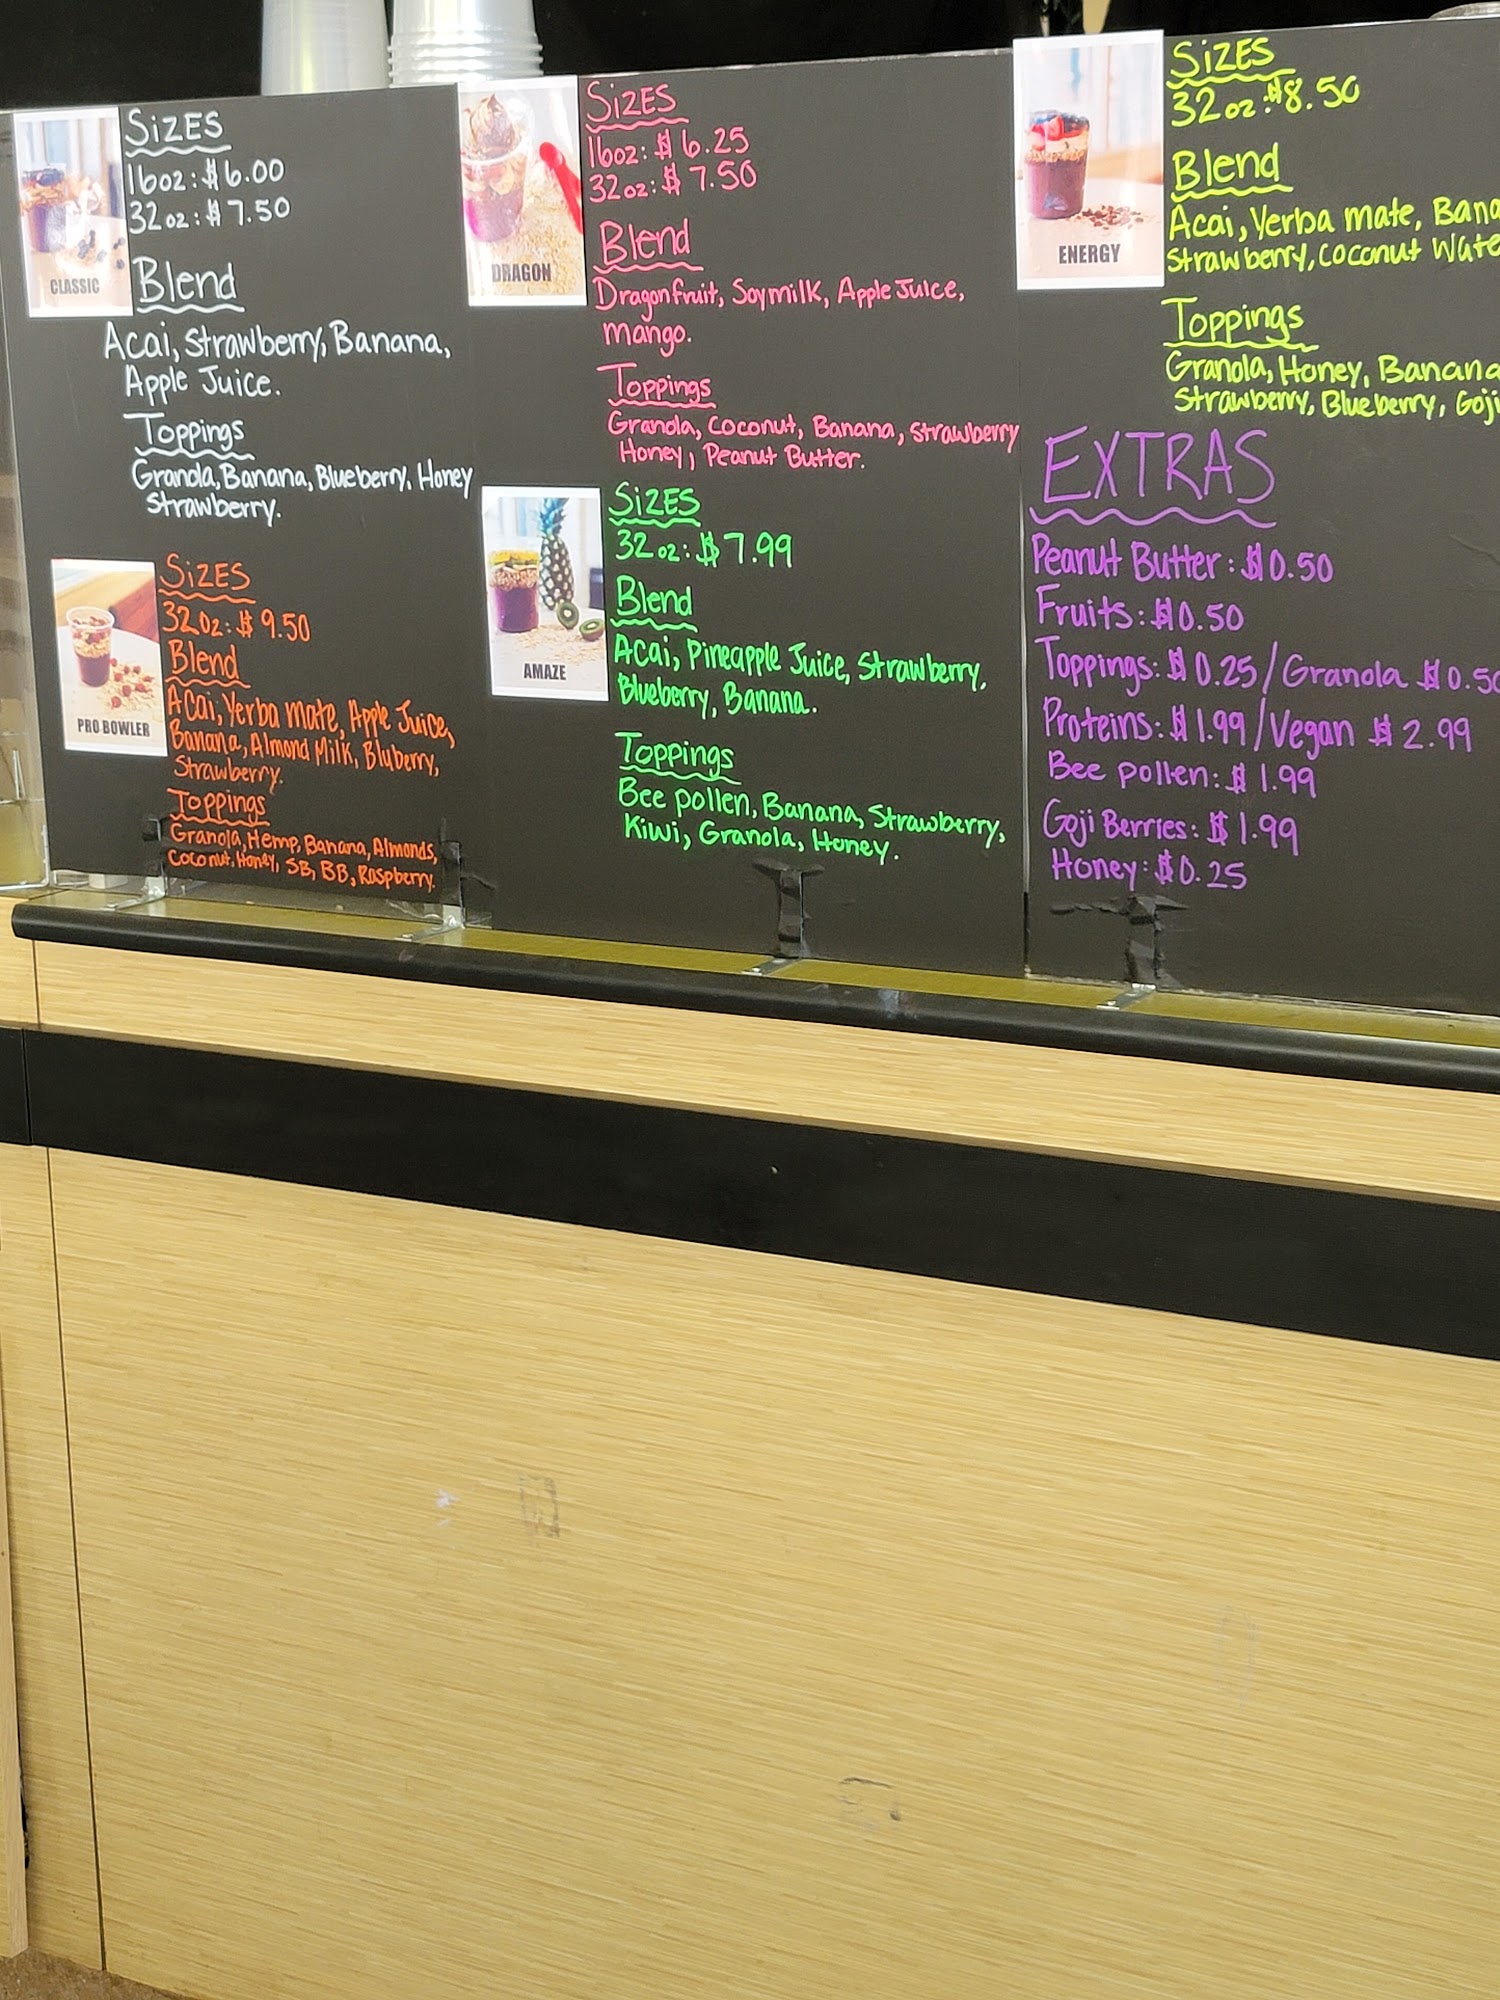 SiZES
16oz: $6.00
32oz: $7.50
CLASSIC
Blend
Acai, Strawberry, Banana,
Apple Juice.
Toppings
Granola, Banana, Blueberry, Honey
Strawberry.
SiZES
32oz: $9.50
Blend
PRO BOWLER
Acai, Yerba mate, Apple Juice,
Banana, Almond Milk, Bluberry,
Strawberry.
Toppings
Granola, Hemp, Banana, Almonds,
Coconut, Honey, SB, BB, Raspberry.
SiZES
16oz: $6.25
32oz: $7.50
DRAGON
Blend
Dragonfruit, Soymilk, Apple Juice,
mango.
Toppings
Granola, Coconut, Banana, Strawberry
Honey, Peanut Butter.
SiZES
32oz: $7.99
Blend
AMAZE
Acai, Pineapple Juice, Strawberry,
Blueberry, Banana.
Toppings
Bee pollen, Banana, Strawberry,
Kiwi, Granola, Honey.
SiZES
32oz: $8.50
Blend
ENERGY
Acai, Yerba mate, Bana
Strawberry, Coconut Wate
Toppings
Granola, Honey, Banana
Strawberry, Blueberry, Goji
EXTRAS
Peanut Butter: $0.50
Fruits: $0.50
Toppings: $0.25/Granola $0.50
Proteins: $1.99/Vegan $2.99
Bee pollen: $1.99
Goji Berries: $1.99
Honey: $0.25